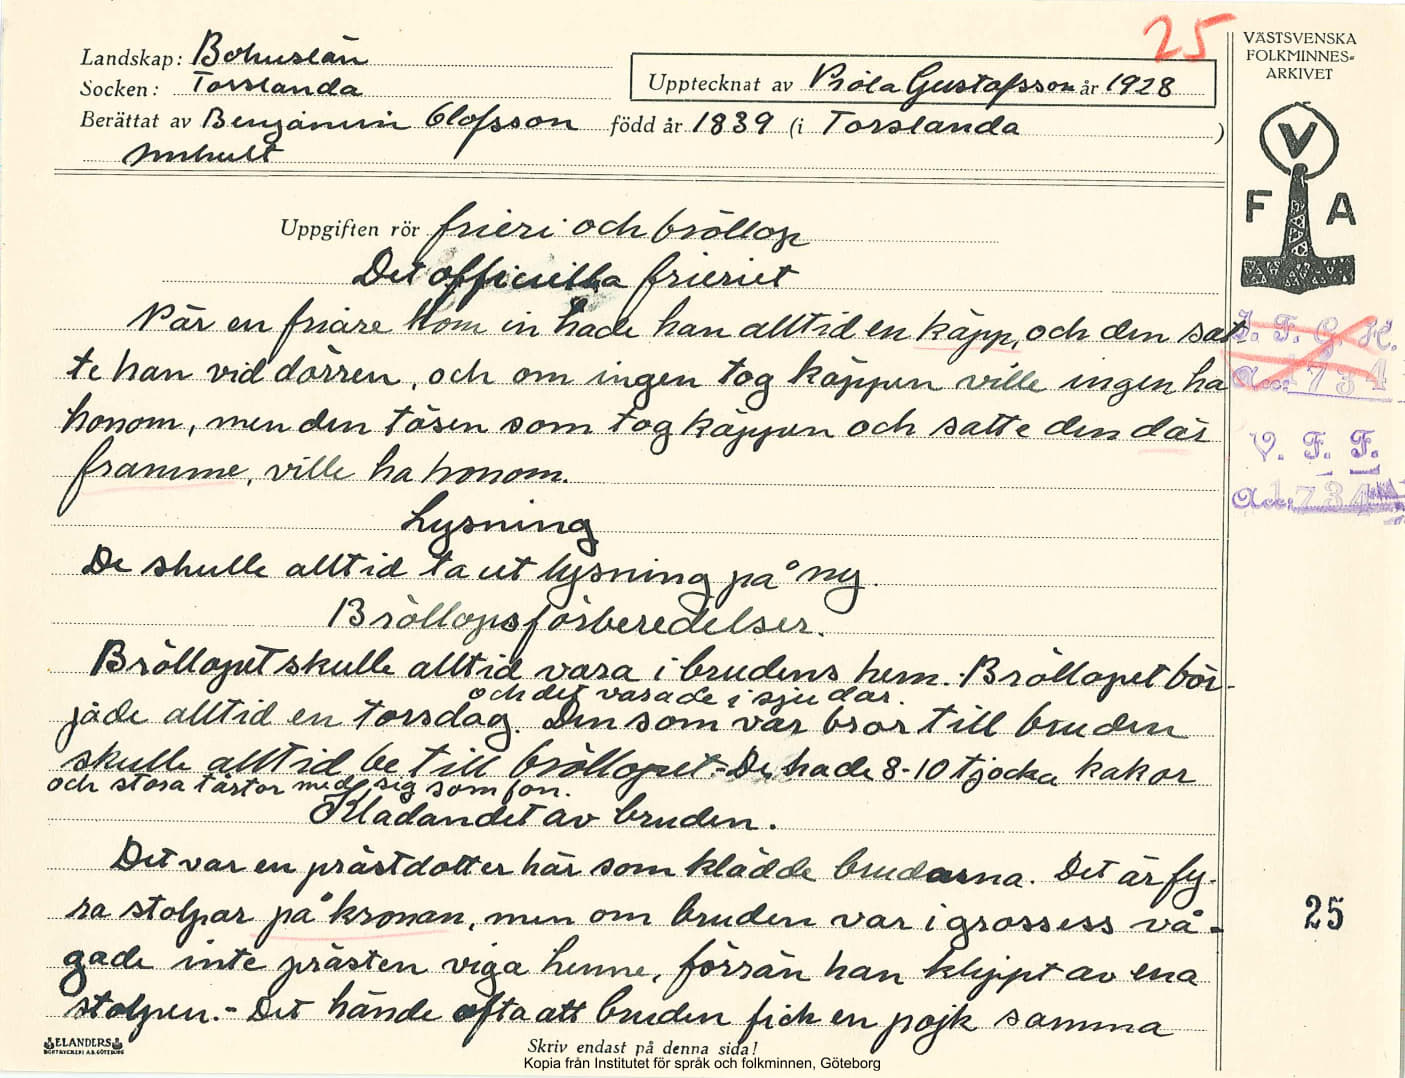 25
VÄSTSVENSKA
FOLKMINNES-
ARKIVET
Landskap: Bohuslän
Socken: Torslanda
Upptecknat av Viola Gustafsson år 1928
Berättat av Benjamin Olofsson född år 1839 (i Torslanda )
V
F A
Uppgiften rör frieri och bröllop
Det officiella frieriet
När en friare kom in hade han alltid en käpp, och den sat-
te han vid dörren, och om ingen tog käppen ville ingen ha
honom, men den tösen som tog käppen och satte den där
framme, ville ha honom.
I. F. G. H.
Acc: 1734
V. F. F.
Acc: 1734
Lysning
De skulle alltid ta ut lysning på ny.
Bröllopsförberedelser.
Bröllopet skulle alltid vara i brudens hem. - Bröllopet bör-
och det varade i sju dar.
jade alltid en torsdag. Den som var bror till bruden
skulle alltid be till bröllopet. - De hade 8-10 tjocka kakor
och stora tårtor med sig som fön.
Klädandet av bruden.
Det var en prästdotter här som klädde brudarna. Det är fy-
ra stolpar på kronan, men om bruden var i grossess vå-
gade inte prästen viga henne, förrän han klippt av ena
stolpen. - Det hände ofta att bruden fick en pojk samma
25
ELANDERS
BOKTRYCKERI A.B. GÖTEBORG
Skriv endast på denna sida!
Kopia från Institutet för språk och folkminnen, Göteborg